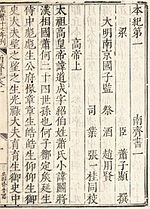 本紀第一　南齊書一
梁　蕭子顯　撰
大明南京國子監祭酒趙用賢
司業張一桂同校
高帝上
太祖高皇帝諱道成字紹伯姓蕭氏小諱鬬將
漢相國蕭何二十四世孫也何子酇定侯延生
侍中彪彪生公府掾章章生皓皓生仰仰生御
史大夫望之望之生光祿大夫育育生御史中